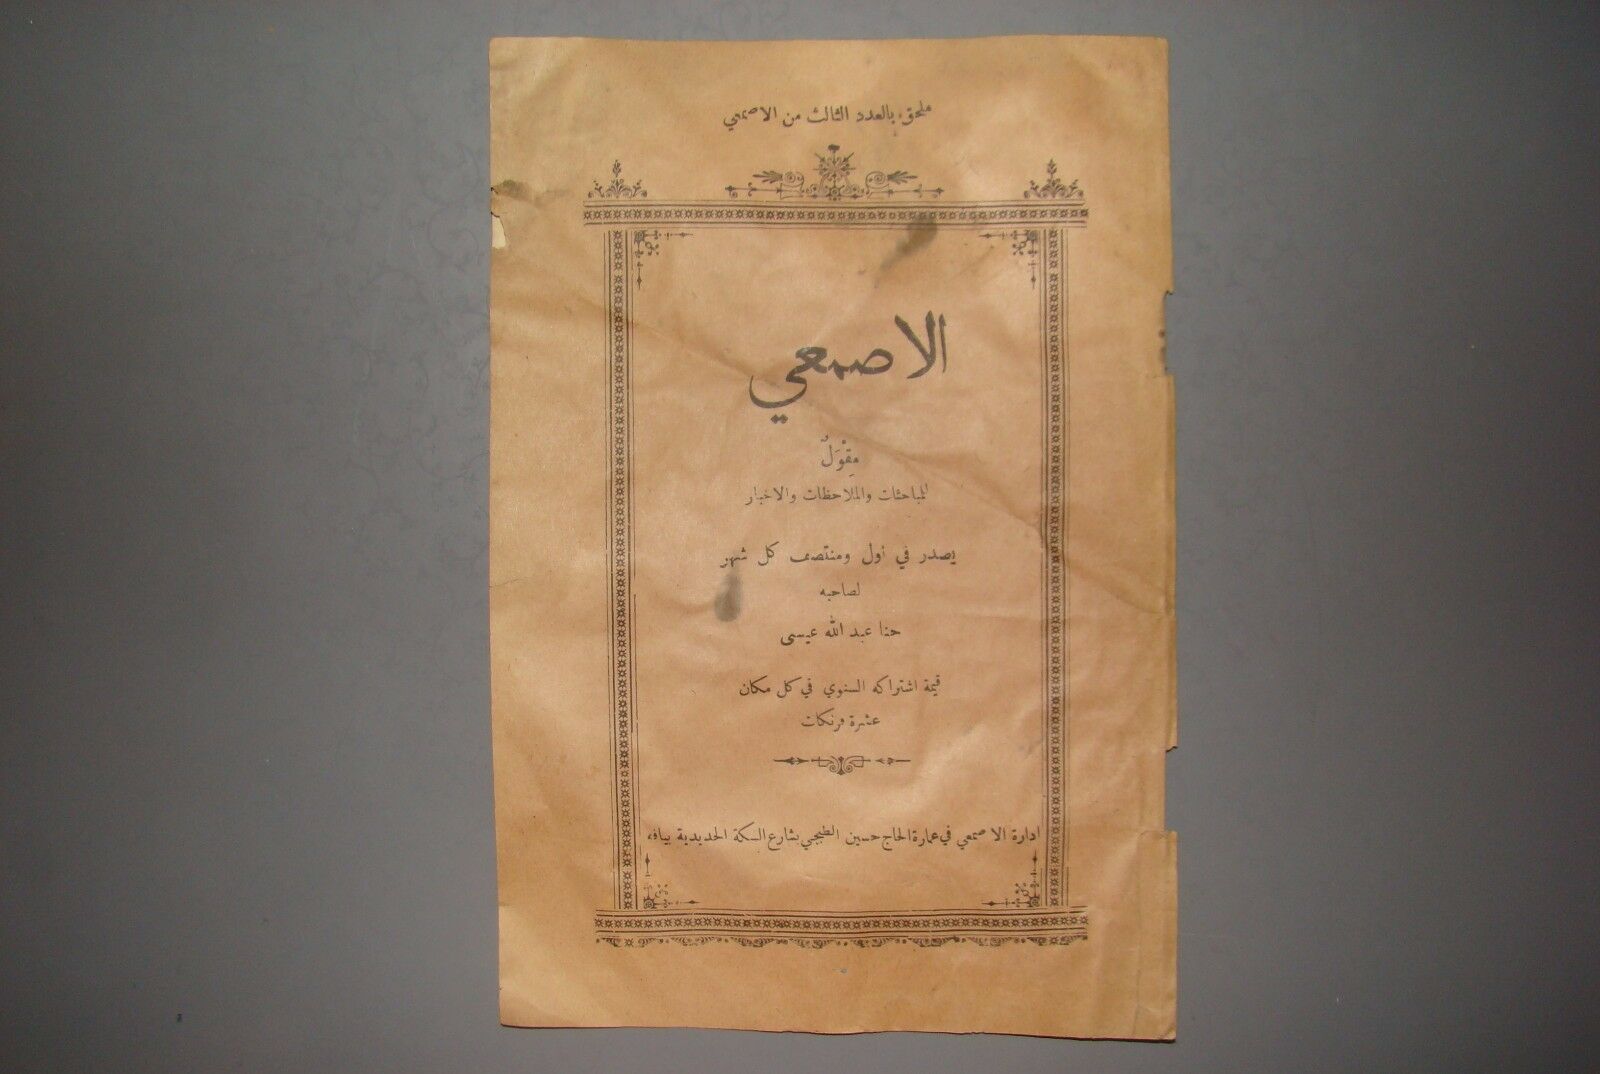 ملحق بالعدد الثالث من الاصمعي
الاصمعي
مِقْوَلٌ
للمباحثات والملاحظات والاخبار
يصدر في اول ومنتصف كل شهر
لصاحبه
حنا عبد الله عيسى
قيمة اشتراكه السنوي في كل مكان
عشرة فرنكات
ادارة الاصمعي في عمارة الحاج حسين الطبجي بشارع السكة الحديدية بيافه